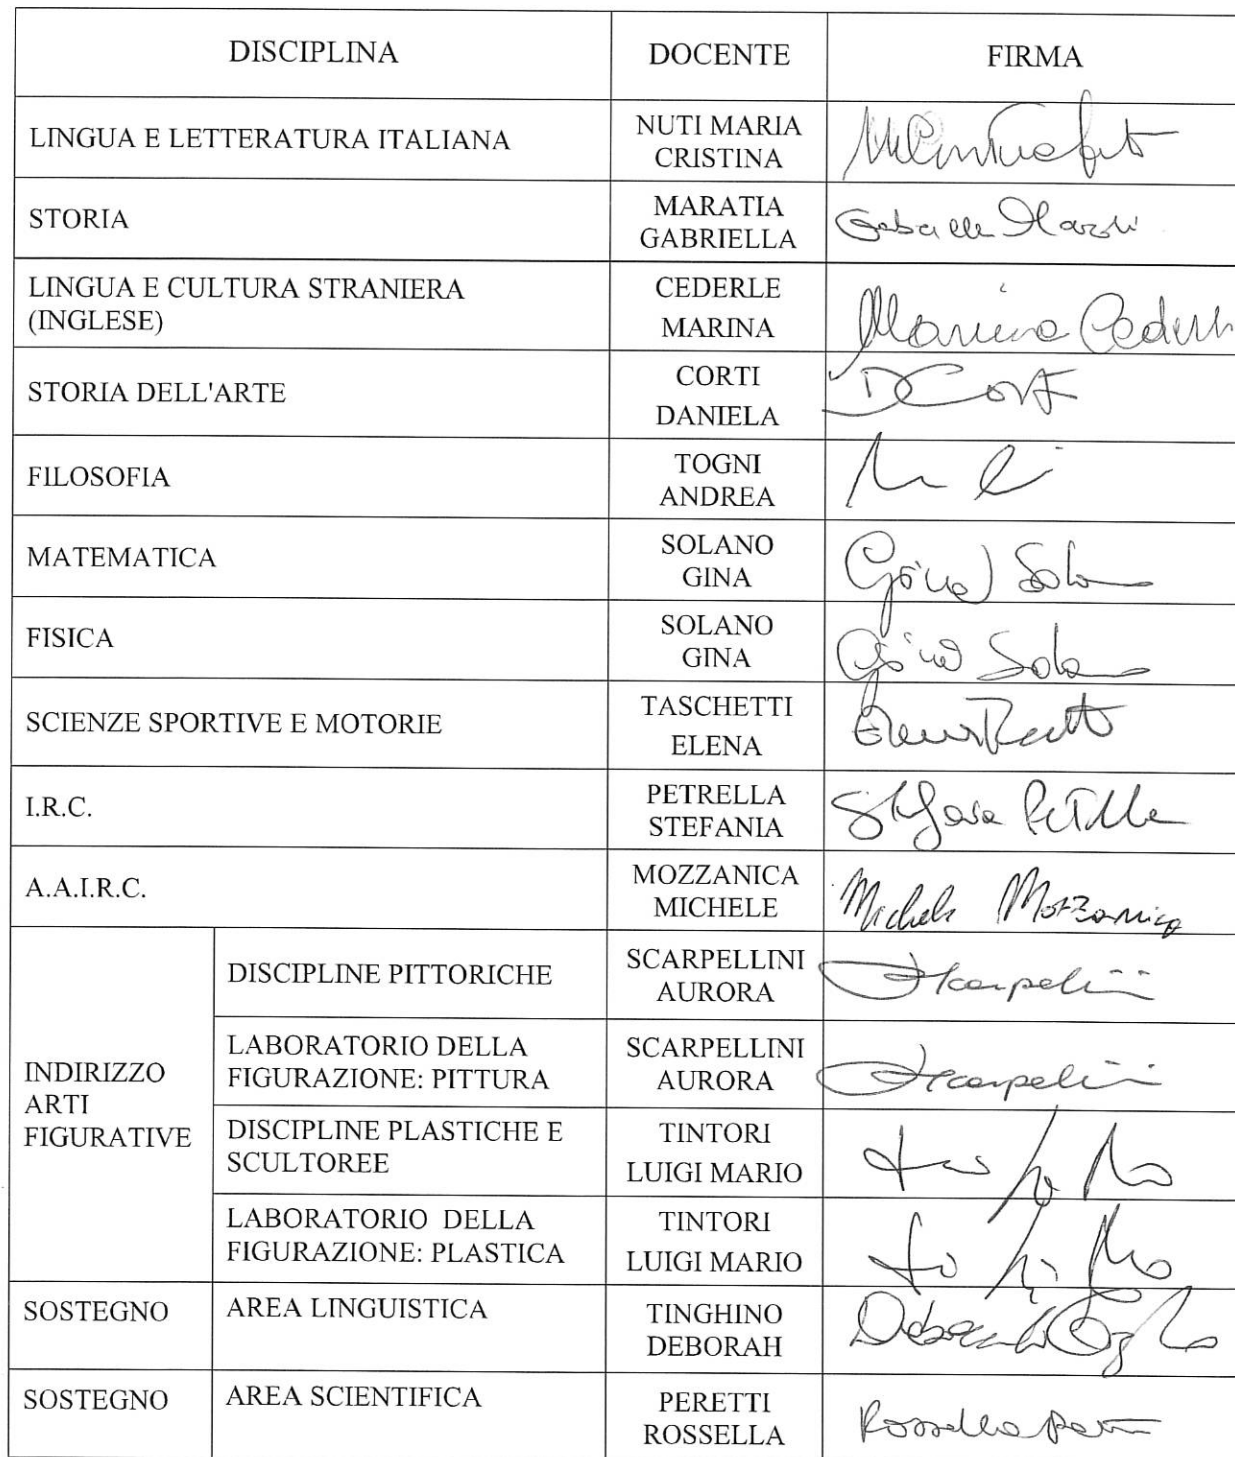 DISCIPLINA DOCENTE FIRMA
LINGUA E LETTERATURA ITALIANA
NUTI MARIA
CRISTINA
STORIA
MARATIA
GABRIELLA
LINGUA E CULTURA STRANIERA
(INGLESE)
CEDERLE
MARINA
Marina
STORIA DELL'ARTE
CORTI
DANIELA
FILOSOFIA
TOGNI
ANDREA
MATEMATICA
SOLANO
GINA
Gina
FISICA
SOLANO
GINA
Gina
SCIENZE SPORTIVE E MOTORIE
TASCHETTI
ELENA
I.R.C.
PETRELLA
STEFANIA
A.A.I.R.C.
MOZZANICA
MICHELE
Michele Mozzanica
INDIRIZZO
ARTI
FIGURATIVE
DISCIPLINE PITTORICHE
SCARPELLINI
AURORA
LABORATORIO DELLA
FIGURAZIONE: PITTURA
SCARPELLINI
AURORA
DISCIPLINE PLASTICHE E
SCULTOREE
TINTORI
LUIGI MARIO
LABORATORIO DELLA
FIGURAZIONE: PLASTICA
TINTORI
LUIGI MARIO
SOSTEGNO
AREA LINGUISTICA
TINGHINO
DEBORAH
SOSTEGNO
AREA SCIENTIFICA
PERETTI
ROSSELLA
Rossella